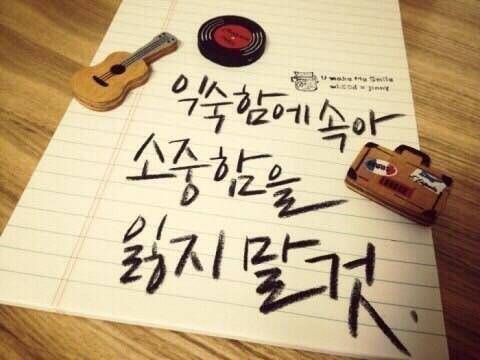 익숙함에 속아
소중함을
잃지 말것.
U make Me Smile